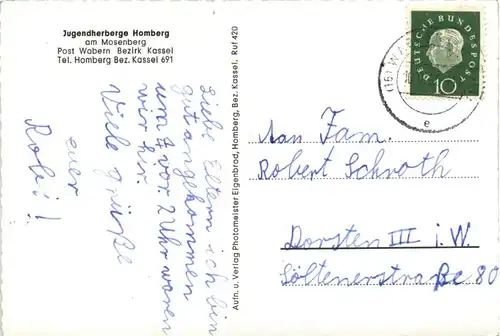 Jugendherberge Homberg
am Mosenberg
Post Wabern Bezirk Kassel
Tel. Homberg Bez. Kassel 691
Liebe Eltern ich bin
gut angekommen
um vor 2 Uhr waren
wir hir.
Viele grüße
euer
Robi!
Aufn. u. Verlag Photomeister Eigenbrod, Homberg, Bez. Kassel. Ruf 420
DEUTSCHE BUNDESPOST
10
(16) WA
e
An Fam.
Robert Schroth
Dorsten III i. W.
Söltenerstraße 80